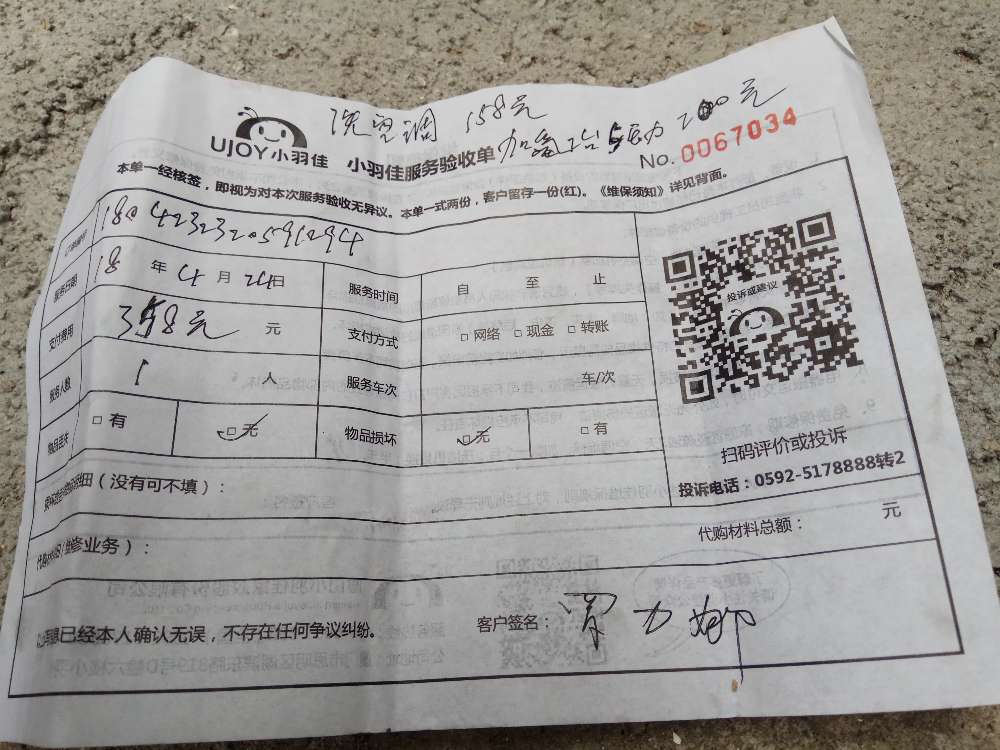 洗空调 158元
UJOY小羽佳 小羽佳服务验收单 加氟 200元
No.0067034
本单一经核签，即视为对本次服务验收无异议。本单一式两份，客户留存一份(红)。《维保须知》详见背面。
1804232320591294
服务日期 18 年 4 月 24日 服务时间 自 至 止
支付费用 358元 元 支付方式 □ 网络 □ 现金 □ 转账
服务人数 1 人 服务车次 车/次
物品丢失 □ 有 □ 无 物品损坏 □ 无 □ 有
投诉或建议
扫码评价或投诉
投诉电话：0592-5178888转2
（没有可不填）：
代购材料总额： 元
业务）：
已经本人确认无误，不存在任何争议纠纷。 客户签名：